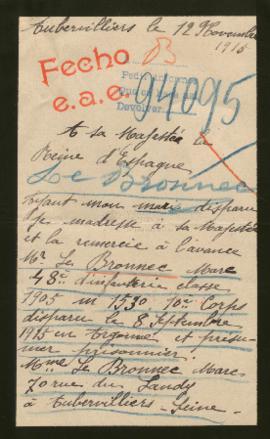 Aubervilliers le 12 Novembre
1915
B
Fecho
e.a.e.
Devolver
94095
A sa Majestée la
Reine d'Espagne
Le Bronnec
ayant mon mari disparu
je madresse à sa Majestée
et la remercie à lavance
Mr Le Bronnec Marc
48e d'infanterie classe
1905 m 1530 10e Corps
disparu le 8 Septembre
1915 en Argonne et présu-
mer prisonnier.
Mme Le Bronnec Marc
70 rue du Landy
à Aubervilliers - Seine -